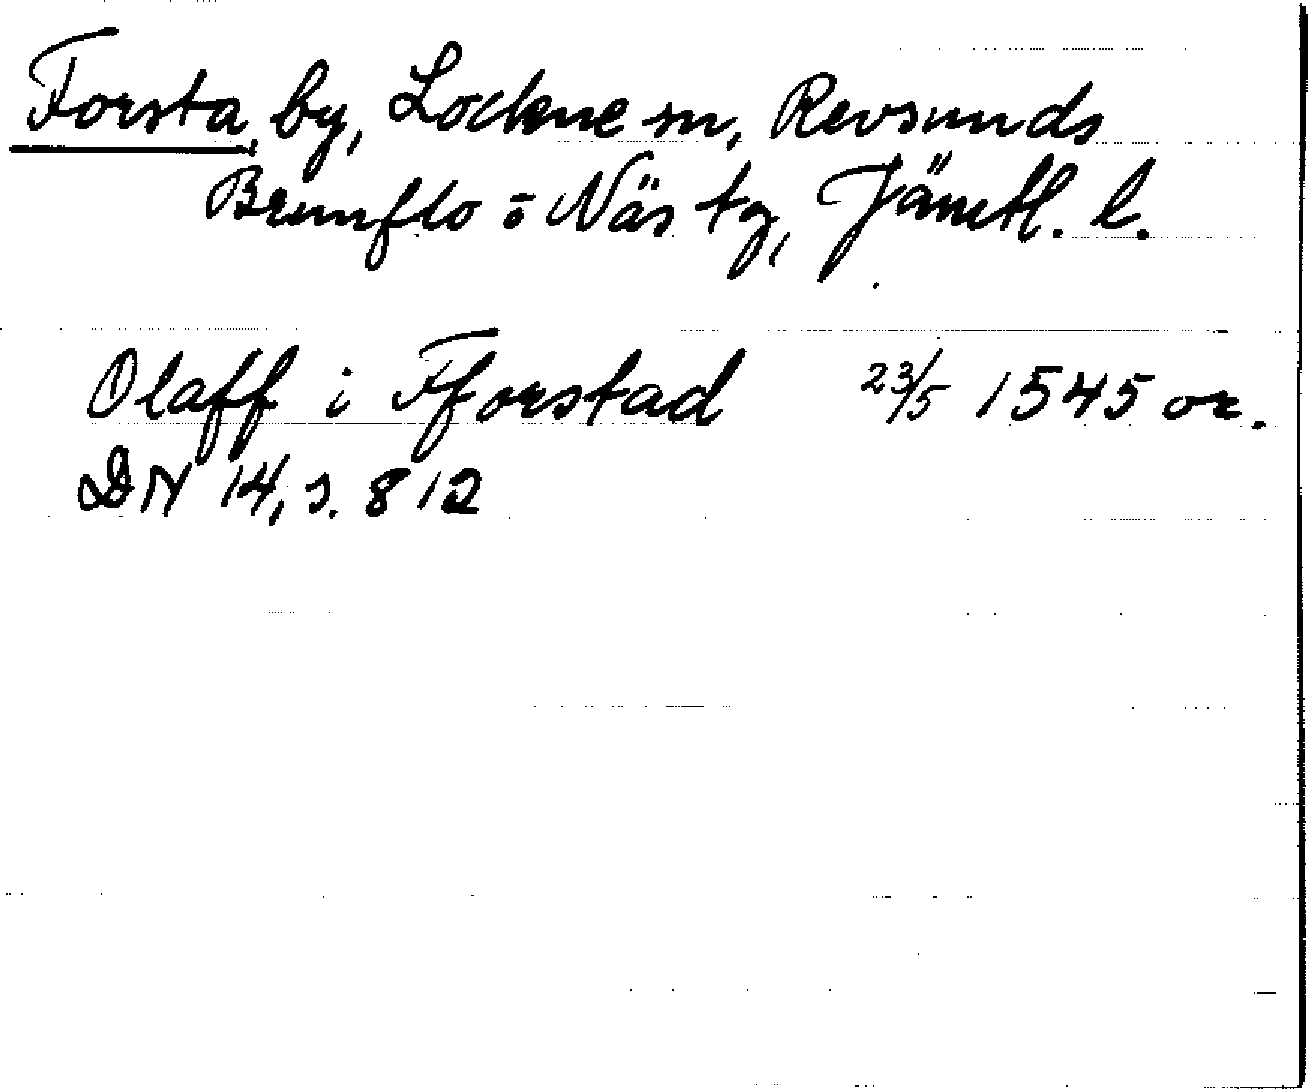 Forsta, by, Lockne sn, Revsunds
Brunflo o Näs tg, Jämtl. l.
Olaff i Fforstad 23/5 1545 or.
DN 14, s. 812